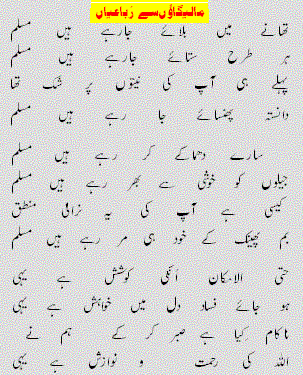 مالیگاؤں سے رباعیاں
تھانے میں بلائے جارہے ہیں مسلم
ہر طرح ستائے جارہے ہیں مسلم
پہلے ہی آپ کی نیتوں پر شک تھا
دانستہ پھنسائے جا رہے ہیں مسلم
سارے دھماکے کر رہے ہیں مسلم
جیلوں کو خوشی سے بھر رہے ہیں مسلم
کیسی ہے آپ کی یہ نرالی منطق
بم پھینک کے خود ہی مر رہے ہیں مسلم
حتی الامکان اُنکی کوشش ہے یہی
ہو جائے فساد دل میں خواہش ہے یہی
ناکام کیا ہے صبر کر کے ہم نے
اللہ کی رحمت و نوازش ہے یہی